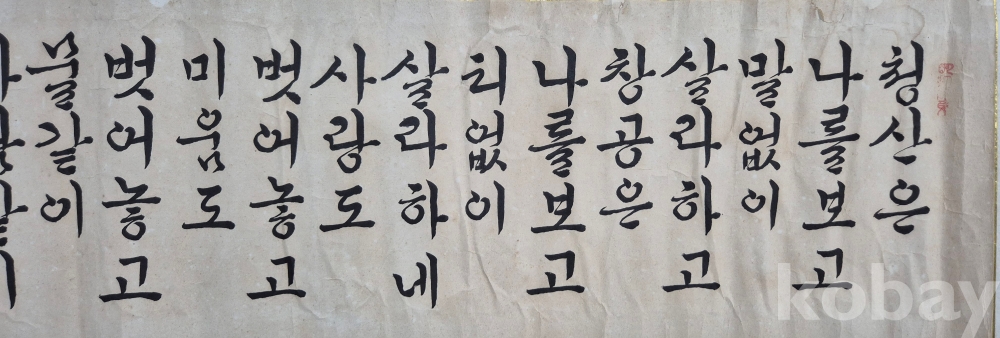 청산은
나를보고
말없이
살라하고
창공은
나를보고
티없이
살라하네
사랑도
벗어놓고
미움도
벗어놓고
물같이
kobay